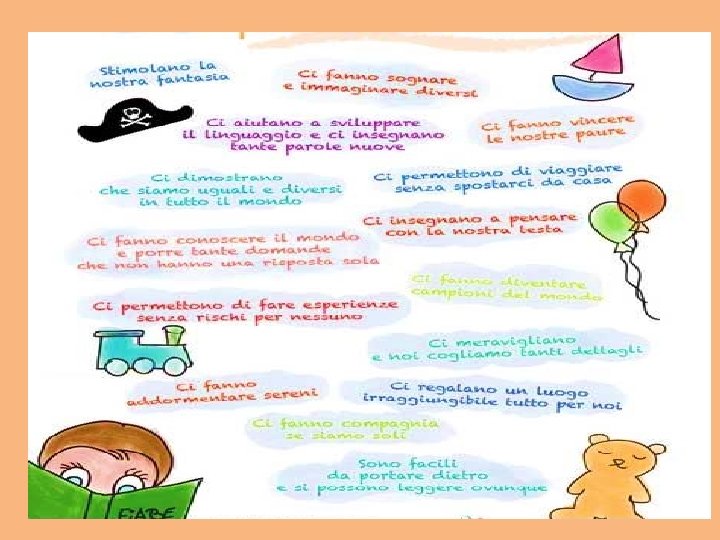 Stimolano la
nostra fantasia
Ci fanno sognare
e immaginare diversi
Ci aiutano a sviluppare
il linguaggio e ci insegnano
tante parole nuove
Ci fanno vincere
le nostre paure
Ci dimostrano
che siamo uguali e diversi
in tutto il mondo
Ci permettono di viaggiare
senza spostarci da casa
Ci insegnano a pensare
con la nostra testa
Ci fanno conoscere il mondo
e porre tante domande
che non hanno una risposta sola
Ci fanno diventare
campioni del mondo
Ci permettono di fare esperienze
senza rischi per nessuno
Ci meravigliano
e noi cogliamo tanti dettagli
Ci fanno
addormentare sereni
Ci regalano un luogo
irraggiungibile tutto per noi
Ci fanno compagnia
se siamo soli
Sono facili
da portare dietro
e si possono leggere ovunque
FIABE